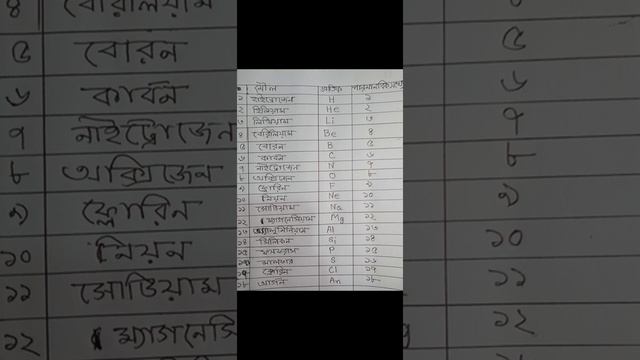 ৪ বোরলিয়াম
৫ বোরন ৫
৬ কার্বন ৬
৭ নাইট্রোজেন ৭
৮ অক্সিজেন ৮
৯ ফ্লোরিন ৯
১০ নিয়ন ১০
১১ সোডিয়াম ১১
১২ ম্যাগনেসি ১২
মৌল প্রতিক
১ হাইড্রোজেন H ১
২ হিলিয়াম He ২
৩ লিথিয়াম Li ৩
৪ বোরলিয়াম Be ৪
৫ বোরন B ৫
৬ কার্বন C ৬
৭ নাইট্রোজেন N ৭
৮ অক্সিজেন O ৮
৯ ফ্লোরিন F ৯
১০ নিয়ন Ne ১০
১১ সোডিয়াম Na ১১
১২ ম্যাগনেসিয়াম Mg ১২
১৩ অ্যালুমিনিয়াম Al ১৩
১৪ সিলিকন Si ১৪
১৫ ফসফরাস P ১৫
সালফার S
১৭ ক্লোরিন Cl ১৭
১৮ আর্গন An ১৮